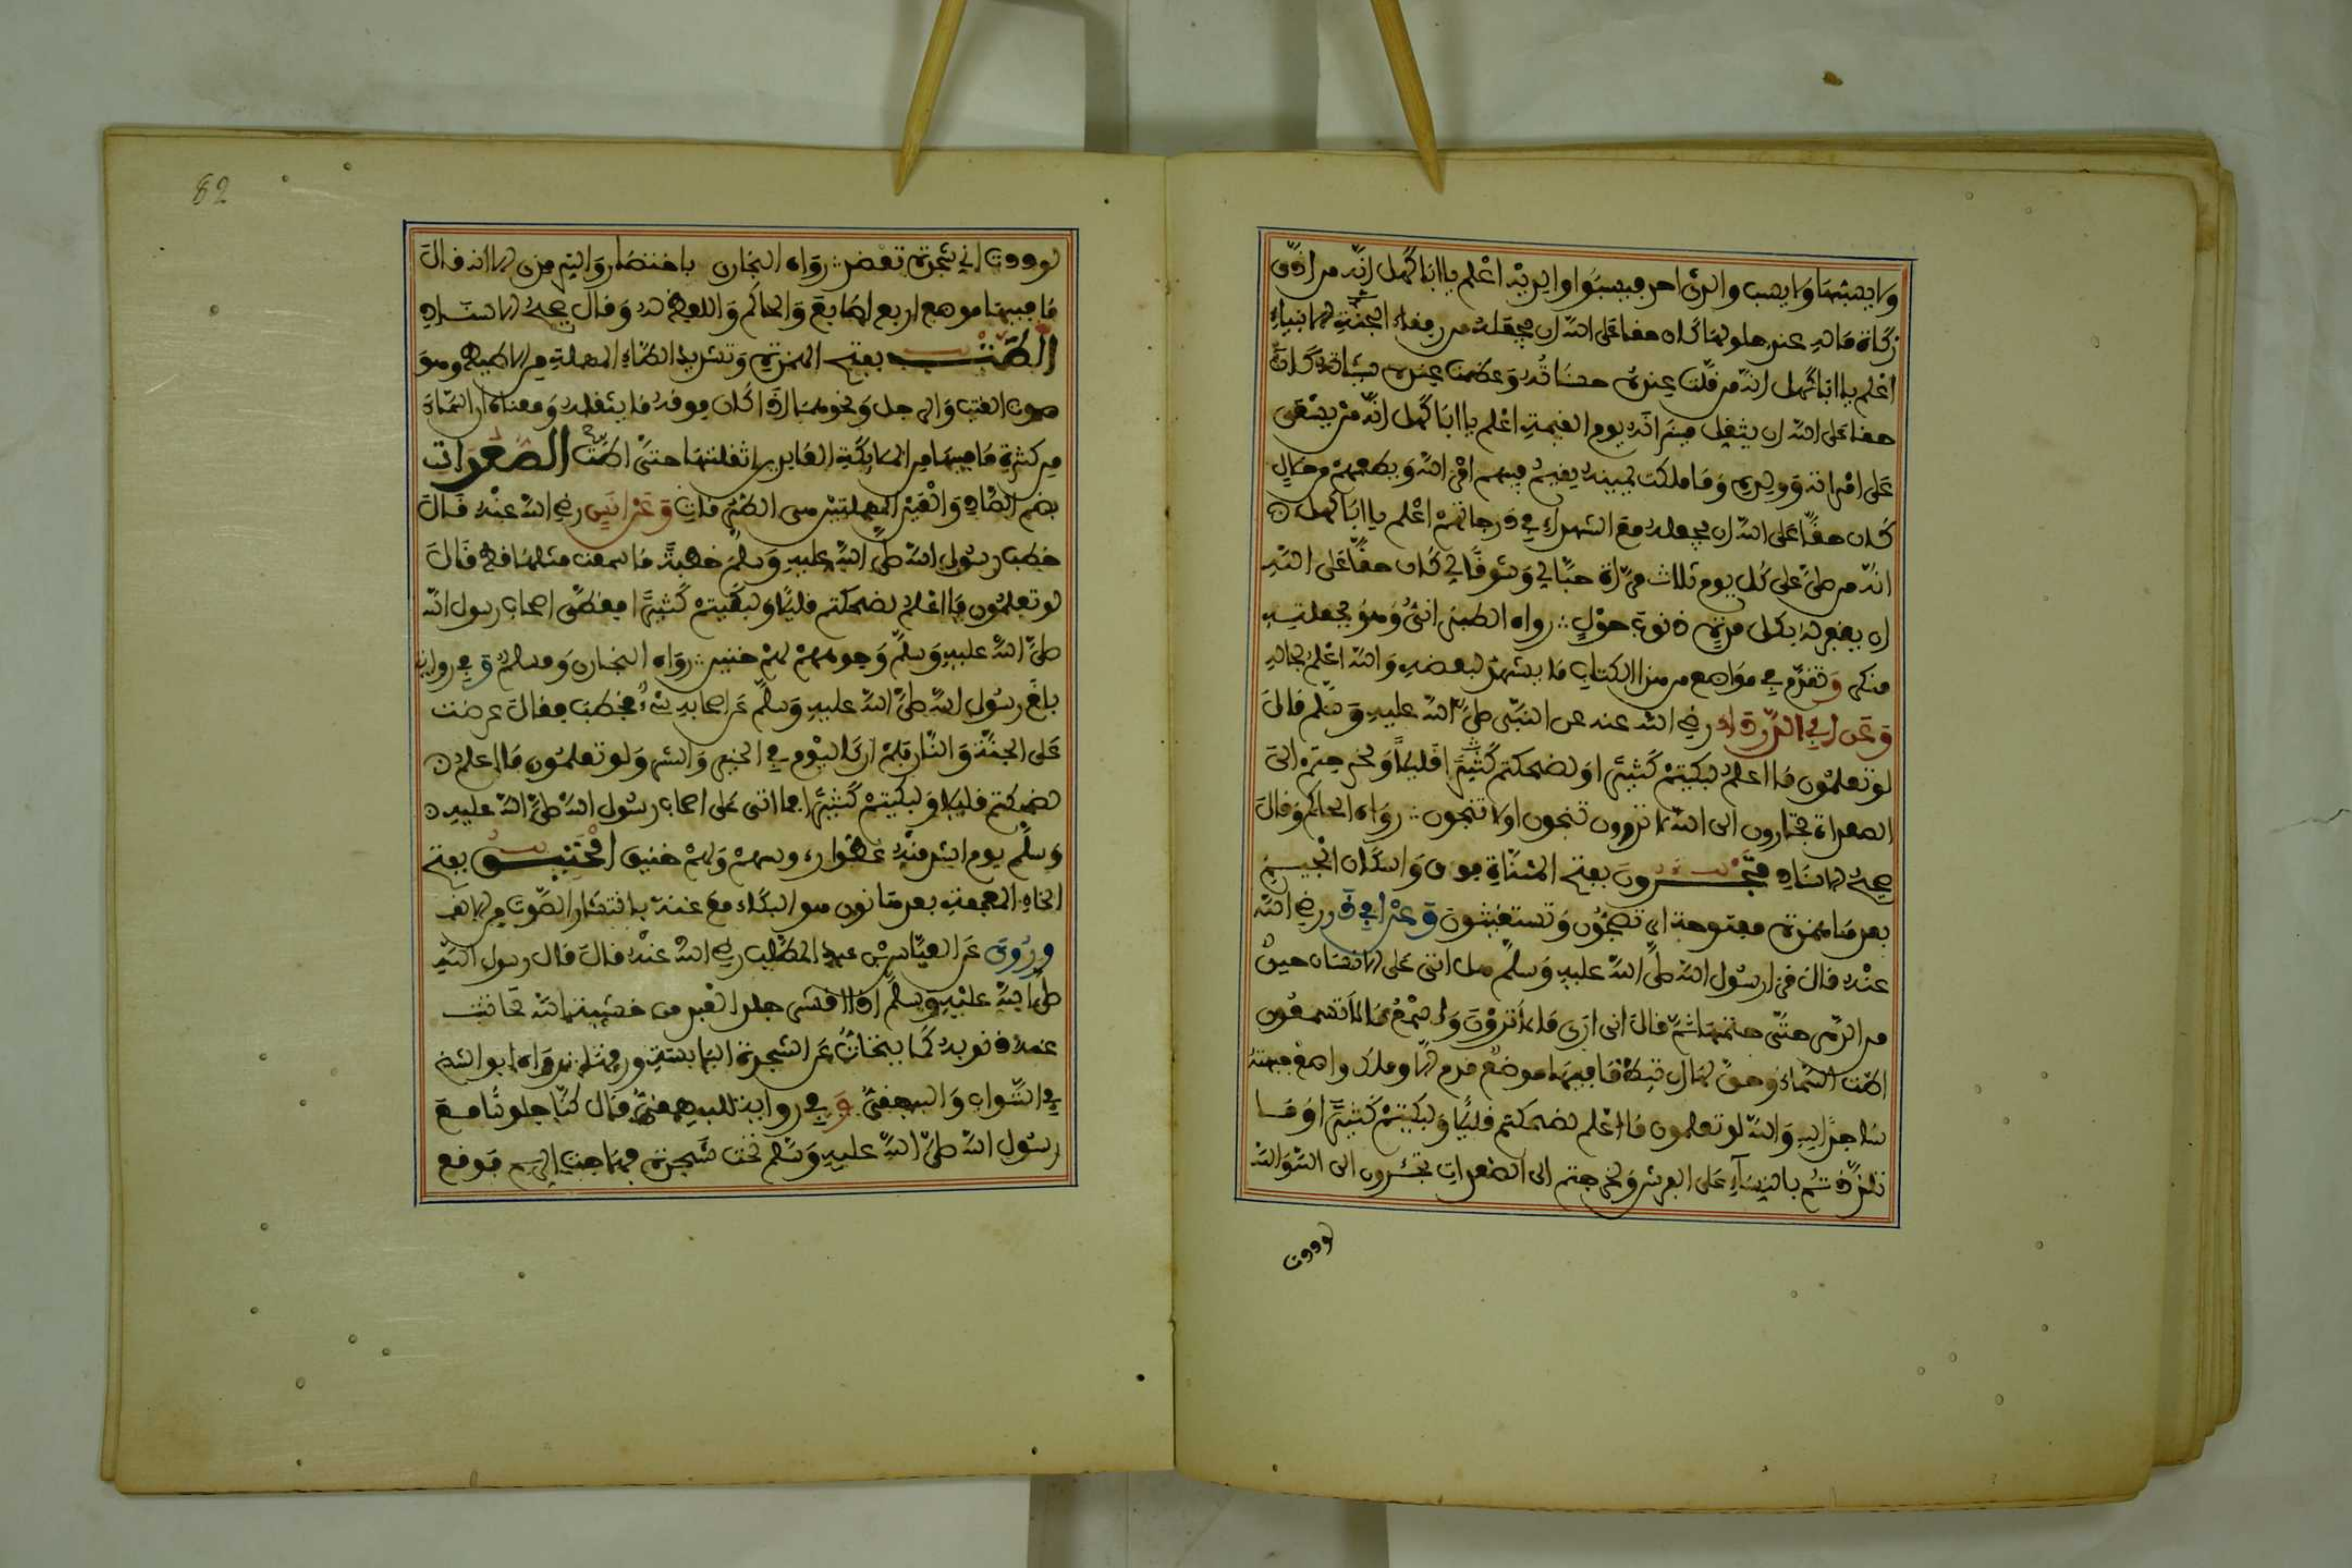 ولا يصبها ولا يصب والدي احد فيسبوا والديه اعلم يا ابا كاهل انه من ادى
زكاة ماله عند حلولها كان حقا على الله ان يجعله من رفقاء الانبياء
اعلم يا ابا كاهل انه من قلت عنده حسناته وعظمت عنده سيئاته كان
حقا على الله ان يثقل ميزانه يوم القيمة اعلم يا ابا كاهل انه من يسعى
على امراته وولده وما ملكت يمينه يقيم فيهم امر الله ويطعمهم من حلال
كان حقا على الله ان يجعله مع الشهداء في درجاتهم اعلم يا ابا كاهل
انه من صلى علي كل يوم ثلاث مرات حبا لي وشوقا لي كان حقا على الله
ان يغفر له بكل مرة ذنوب حول رواه الطبراني وهو بجملته
منكر وتقدم في مواضع من هذا الكتاب ما يشهد لبعضه والله اعلم بحاله
وعن ابي الدرداء رضي الله عنه عن النبي صلى الله عليه وسلم قال
لو تعلمون ما اعلم لبكيتم كثيرا ولضحكتم قليلا ولخرجتم الى
الصعدات تجارون الى الله لا تدرون تنجون او لا تنجون رواه الحاكم وقال
صحيح الاسناد تجـــرون بفتح المثناة فوق واسكان الجيم
بعدها همزة مفتوحة اي تضجون وتستغيثون وعن ابي ذر رضي الله
عنه قال قرا رسول الله صلى الله عليه وسلم هل اتى على الانسان حين
من الدهر حتى ختمها ثم قال اني ارى ما لا ترون واسمع ما لا تسمعون
اطت السماء وحق لها ان تئط ما فيها موضع قدم الا وملك واضع جبهته
ساجدا لله والله لو تعلمون ما اعلم لضحكتم قليلا ولبكيتم كثيرا وما
تلذذتم بالنساء على الفرش ولخرجتم الى الصعدات تجئرون الى الله والله
لوددت
82
لوددت اني شجرة تعضد رواه البخاري باختصار والترمذي الا انه قال
ما فيها موضع اربع اصابع والحاكم واللفظ له وقال صحيح الاسناد
اطت بفتح الهمزة وتشديد الطاء المهملة من الاطيط وهو
صوت القتب والرحل ونحوهما اذا كان فوقه ما يثقله ومعناه ان السماء
من كثرة ما فيها من الملائكة العابدين اثقلتها حتى اطت الصعدات
بضم الصاد والعين المهملتين هي الطرقات وعن انس رضي الله عنه قال
خطب رسول الله صلى الله عليه وسلم خطبة ما سمعت مثلها قط قال
لو تعلمون ما اعلم لضحكتم قليلا ولبكيتم كثيرا فغطى اصحاب رسول الله
صلى الله عليه وسلم وجوههم لهم خنين رواه البخاري ومسلم وفي رواية
بلغ رسول الله صلى الله عليه وسلم عن اصحابه شيء فخطب فقال عرضت
على الجنة والنار فلم ار كاليوم في الخير والشر ولو تعلمون ما اعلم
لضحكتم قليلا ولبكيتم كثيرا فما اتى على اصحاب رسول الله صلى الله عليه
وسلم يوم اشد منه غطوا رءوسهم ولهم خنين الخنيـــن بفتح
الخاء المعجمة بعدها نون هو البكاء مع غنة بانتشار الصوت من الانف
وروي عن العباس بن عبد المطلب رضي الله عنه قال قال رسول الله
صلى الله عليه وسلم اذا اقشعر جلد العبد من خشية الله تحاتت
عنه ذنوبه كما يتحات عن الشجرة اليابسة ورقها رواه ابو الشيخ
في الثواب والبيهقي وفي رواية للبيهقي قال كنا جلوسا مع
رسول الله صلى الله عليه وسلم تحت شجرة فهاجت الريح فوقع